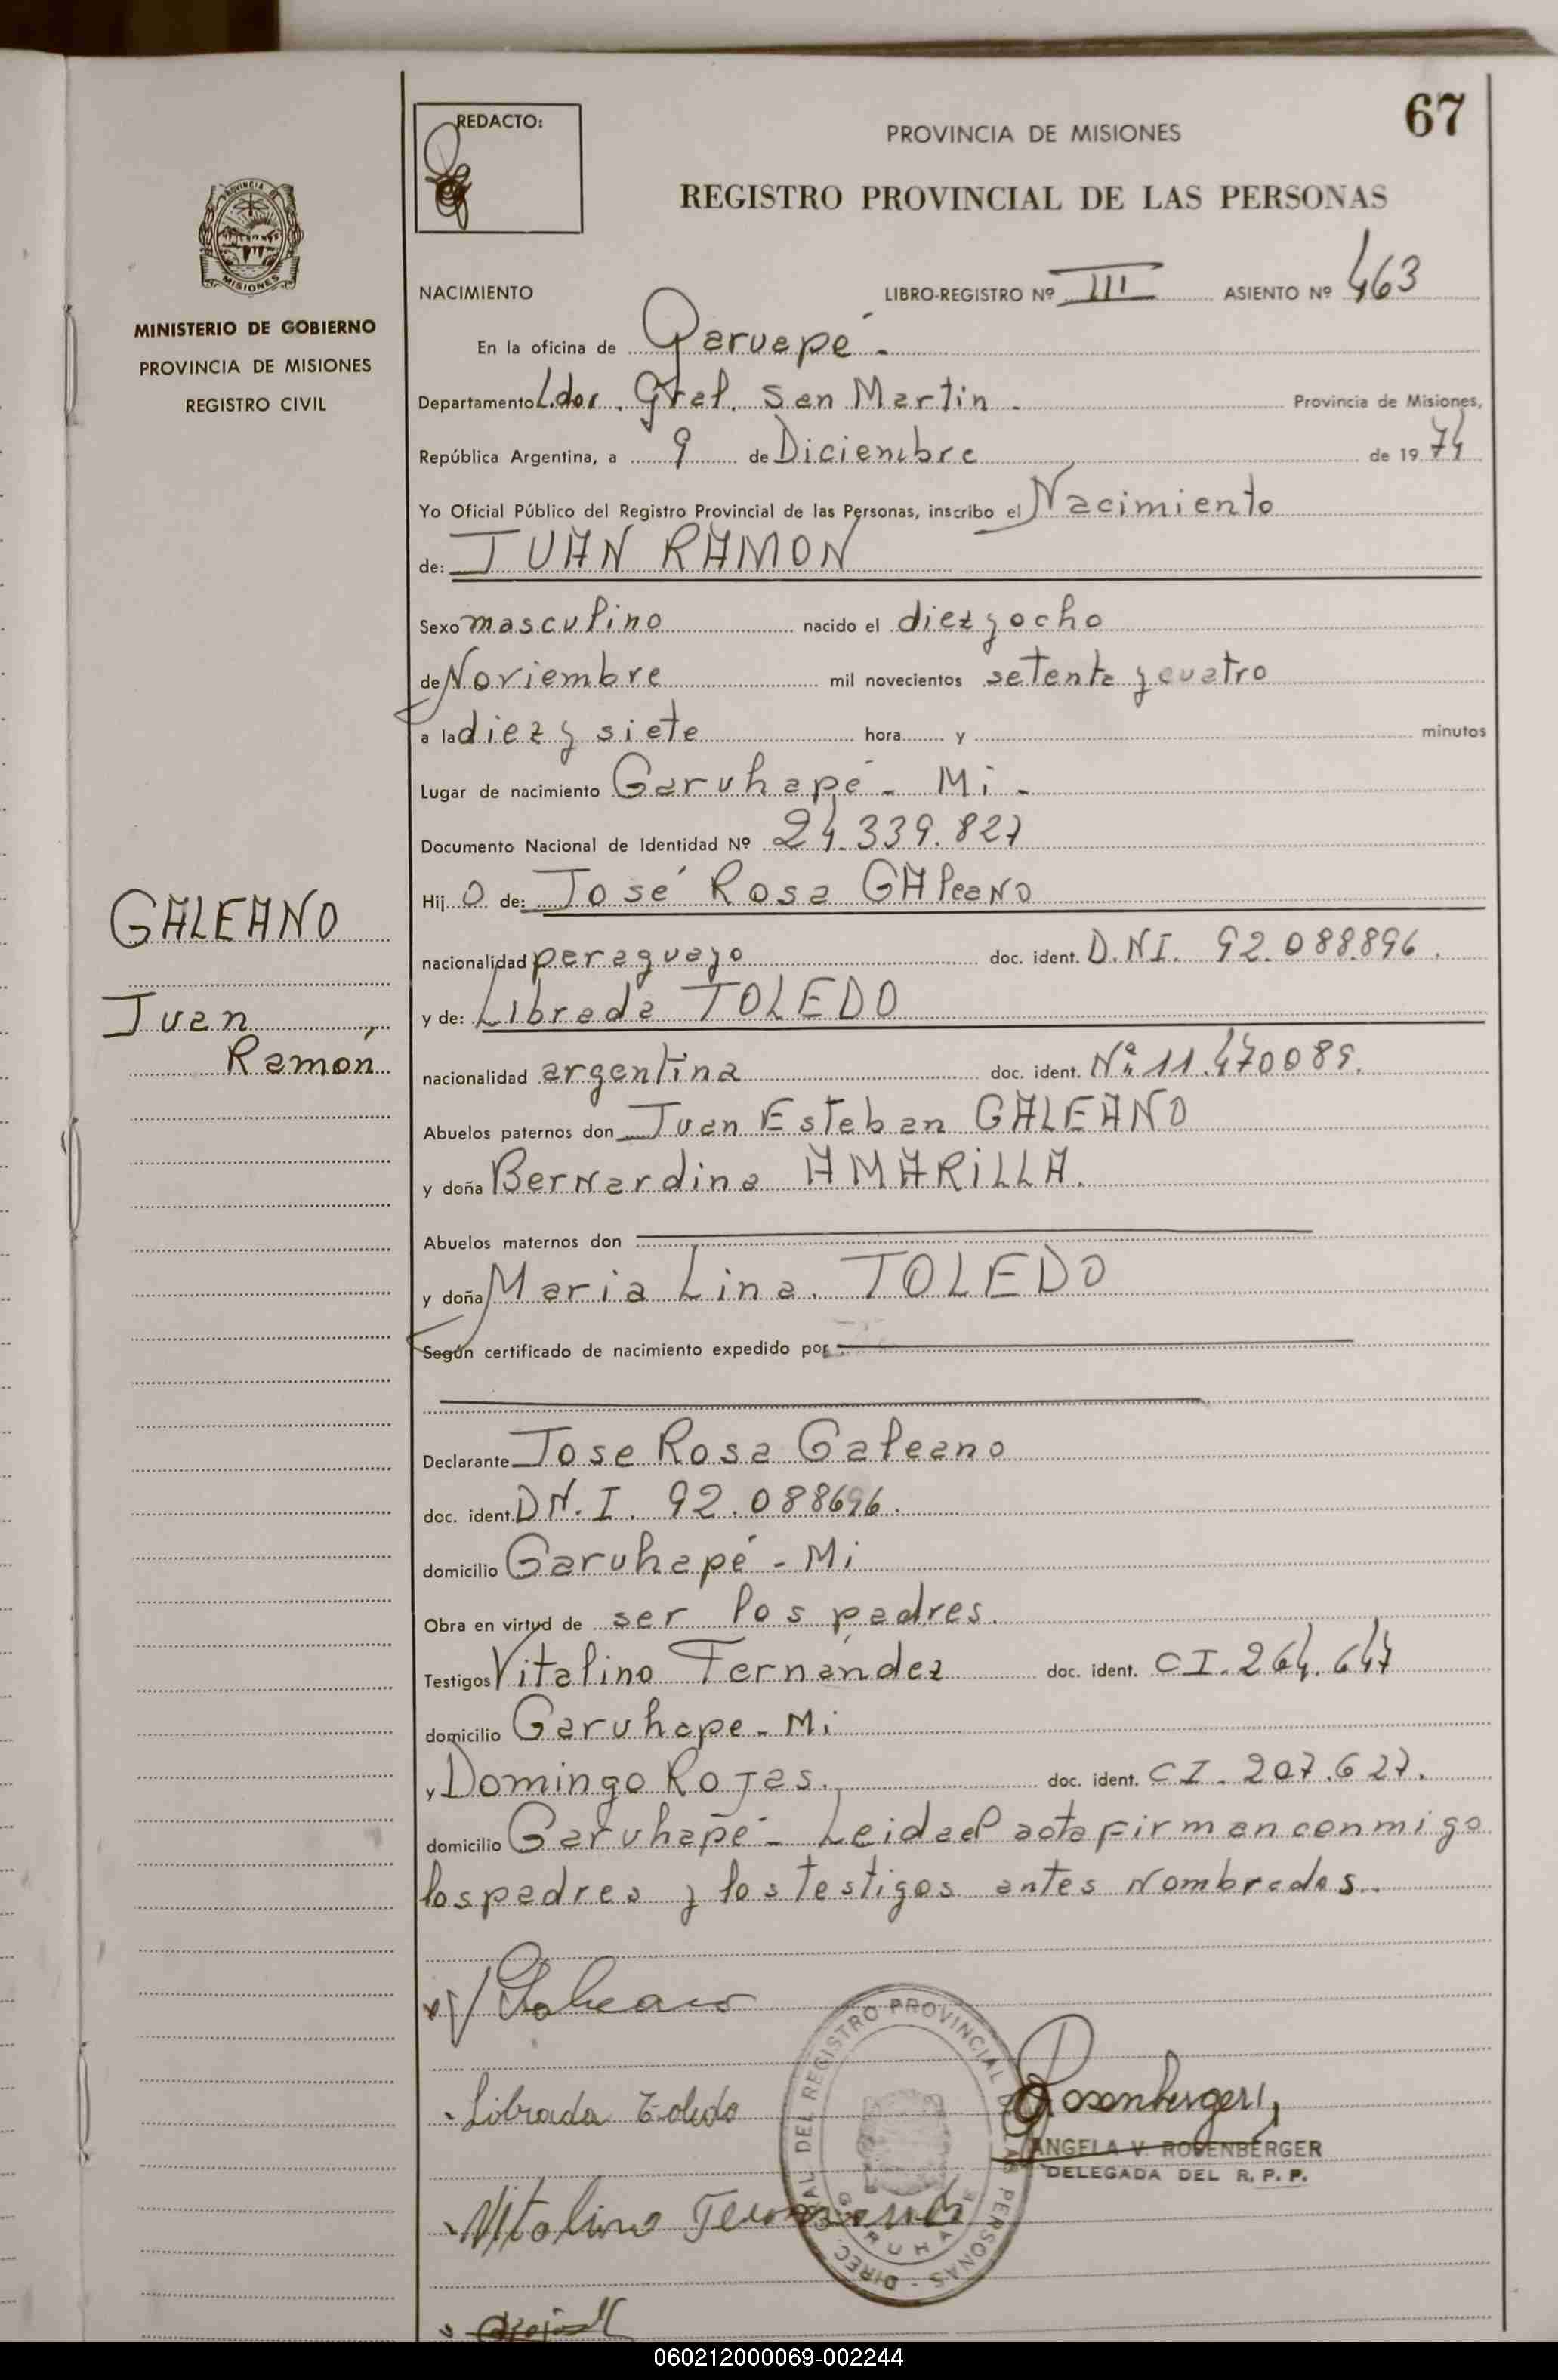 67
REDACTO:
PROVINCIA DE MISIONES
REGISTRO PROVINCIAL DE LAS PERSONAS
MISIONES
MINISTERIO DE GOBIERNO
PROVINCIA DE MISIONES
REGISTRO CIVIL
NACIMIENTO LIBRO-REGISTRO Nº III ASIENTO Nº 463
En la oficina de Garuapé -
Departamento L.dor. Gral. San Martin - Provincia de Misiones,
República Argentina, a 9 de Diciembre de 19 74
Yo Oficial Público del Registro Provincial de las Personas, inscribo el Nacimiento
de: JUAN RAMON
Sexo masculino nacido el diez y ocho
de Noviembre mil novecientos setenta y cuatro
a la diez y siete hora y minutos
Lugar de nacimiento Garuhapé - Mi -
Documento Nacional de Identidad Nº 24.339.827
Hij o de: José Rosa GAleaNO
nacionalidad paraguayo doc. ident. D.NI. 92.088.896.
y de: Librada TOLEDO
nacionalidad argentina doc. ident. Nº 11.470089.
Abuelos paternos don Juan Esteban GALEANO
y doña BerNardina AMARiLLA.
Abuelos maternos don
y doña Maria Lina. TOLEDO
Según certificado de nacimiento expedido por
Declarante Jose Rosa Galeano
doc. ident. DN.I. 92.088696.
domicilio Garuhapé - Mi
Obra en virtud de ser los padres.
Testigos Vitalino Fernández doc. ident. CI. 264.647
domicilio Garuhape - Mi
y Domingo Rojas. doc. ident. CI. 207.627.
domicilio Garuhapé - Leida el acta firman conmigo
los padres y los testigos antes Nombrados.
GALEANO
Juan,
Ramón
Galeano
Librada Toledo
Vitalino Fernandez
DIREC. GRAL. DEL REGISTRO PROVINCIAL DE LAS PERSONAS -
Rosenberger
ANGELA V. ROSENBERGER
DELEGADA DEL R. P. P.
060212000069-002244